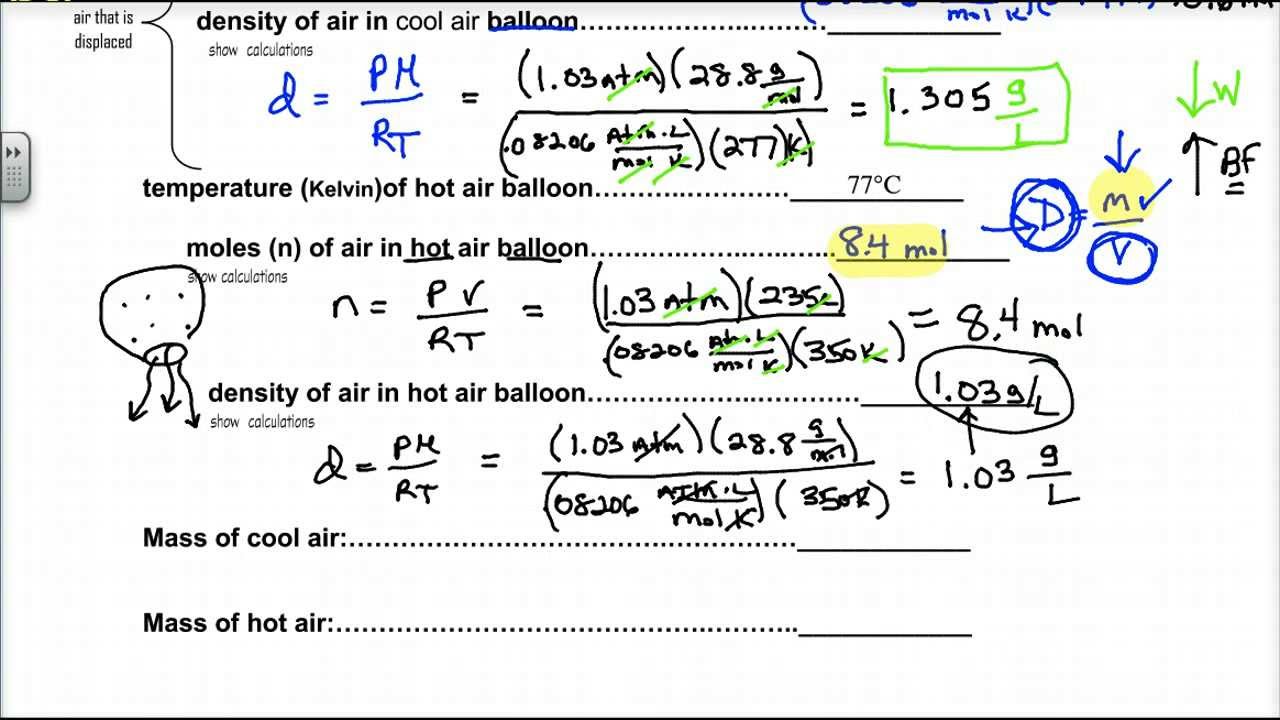 air that is
displaced
density of air in cool air balloon
show calculations
d = PM/RT = (1.03 atm)(28.8 g/mol) / (.08206 atm·L/mol K)(277)K) = 1.305 g/L
↓W
↑BF
temperature (Kelvin)of hot air balloon 77°C
D = m/V
moles (n) of air in hot air balloon 8.4 mol
show calculations
n = PV/RT = (1.03 atm)(235L) / (.08206 atm·L/mol K)(350K) = 8.4 mol
density of air in hot air balloon 1.03g/L
show calculations
d = PM/RT = (1.03 atm)(28.8 g/mol) / (.08206 ATM·L/mol K)(350K) = 1.03 g/L
Mass of cool air:
Mass of hot air: